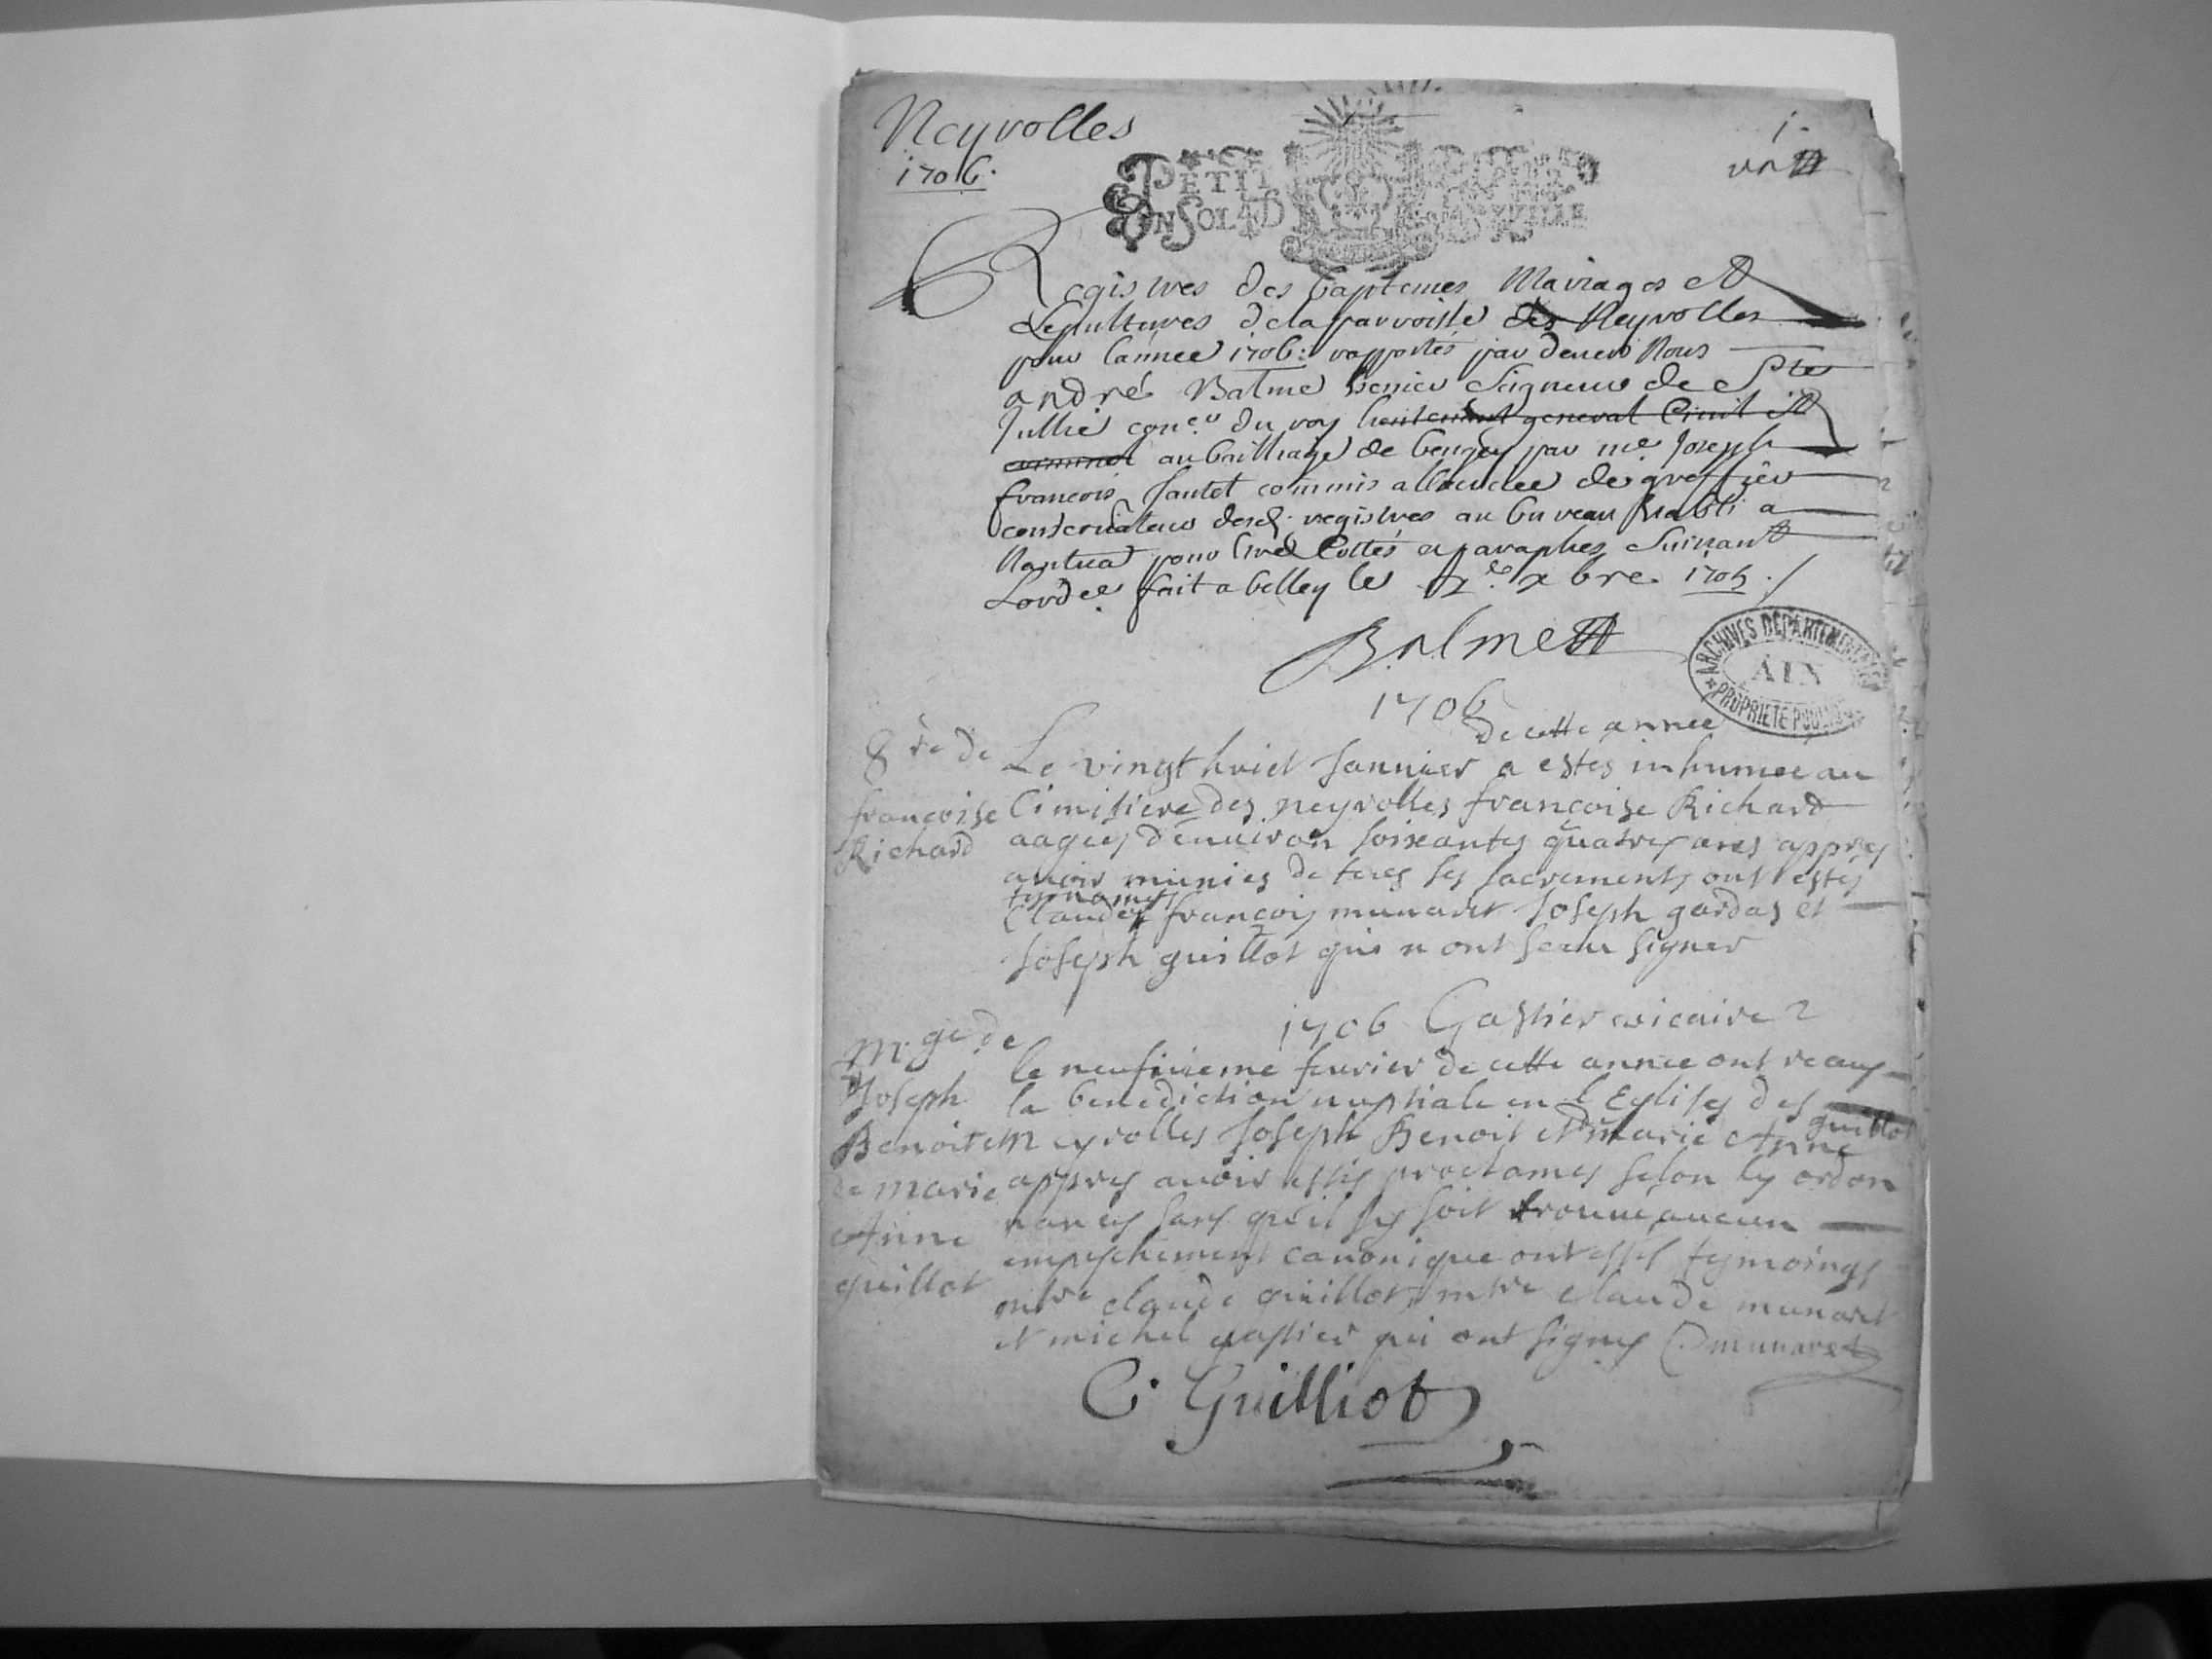 Neyrolles
1706.
1.
un
PETIT
EN SOI 4 D
Registres des baptemes Mariages et
sepultures dela parroisse des Neyrolles
pour lannee 1706: rapportés par devers Nous
andré Balme seigneur de Ste
Jullie con.er du roy lieutenant general Civil et
criminel au bailliage de beugey par me Joseph
francois commis de greffier
conservateur desd. registres au bureau establi a
Nantua pour livre Cottés et paraphés Suivant
Lord.ce fait a belley le xbre 1705 ./
Balme
ARCHIVES DEPARTEMENTALES
AIN
PROPRIETE PUBLIQUE
1706
de cette annee
8re de
francoise
Richard
Le vingt huict Januier a estes inhumee au
Cimitiere des neyrolles françoise Richard
aagees d'enuiron soixantes quatres ans appres
auoir munies de tous ses sacrements ont estes
tesmoings
Claudes francois munaret Joseph gardas et
Joseph guillot qui n ont sceu signer
1706 Gastier vicaire
m.ge de
Joseph
Benoit et
de marie
Anne
guillot
le neufuieme feurier de cette annee ont receus
la benediction nuptiale en l Eglises des
guillot
Neyrolles Joseph Benoit et marie Anne
appres auoir estes proclames selon les ordon
nances sans qu'il sy soit trouué aucun
empeschement canonique ont estes tesmoings
mtre claude guillot mtre claude munaret
et michel gastier qui ont signes C. munaret
C. Guilliot